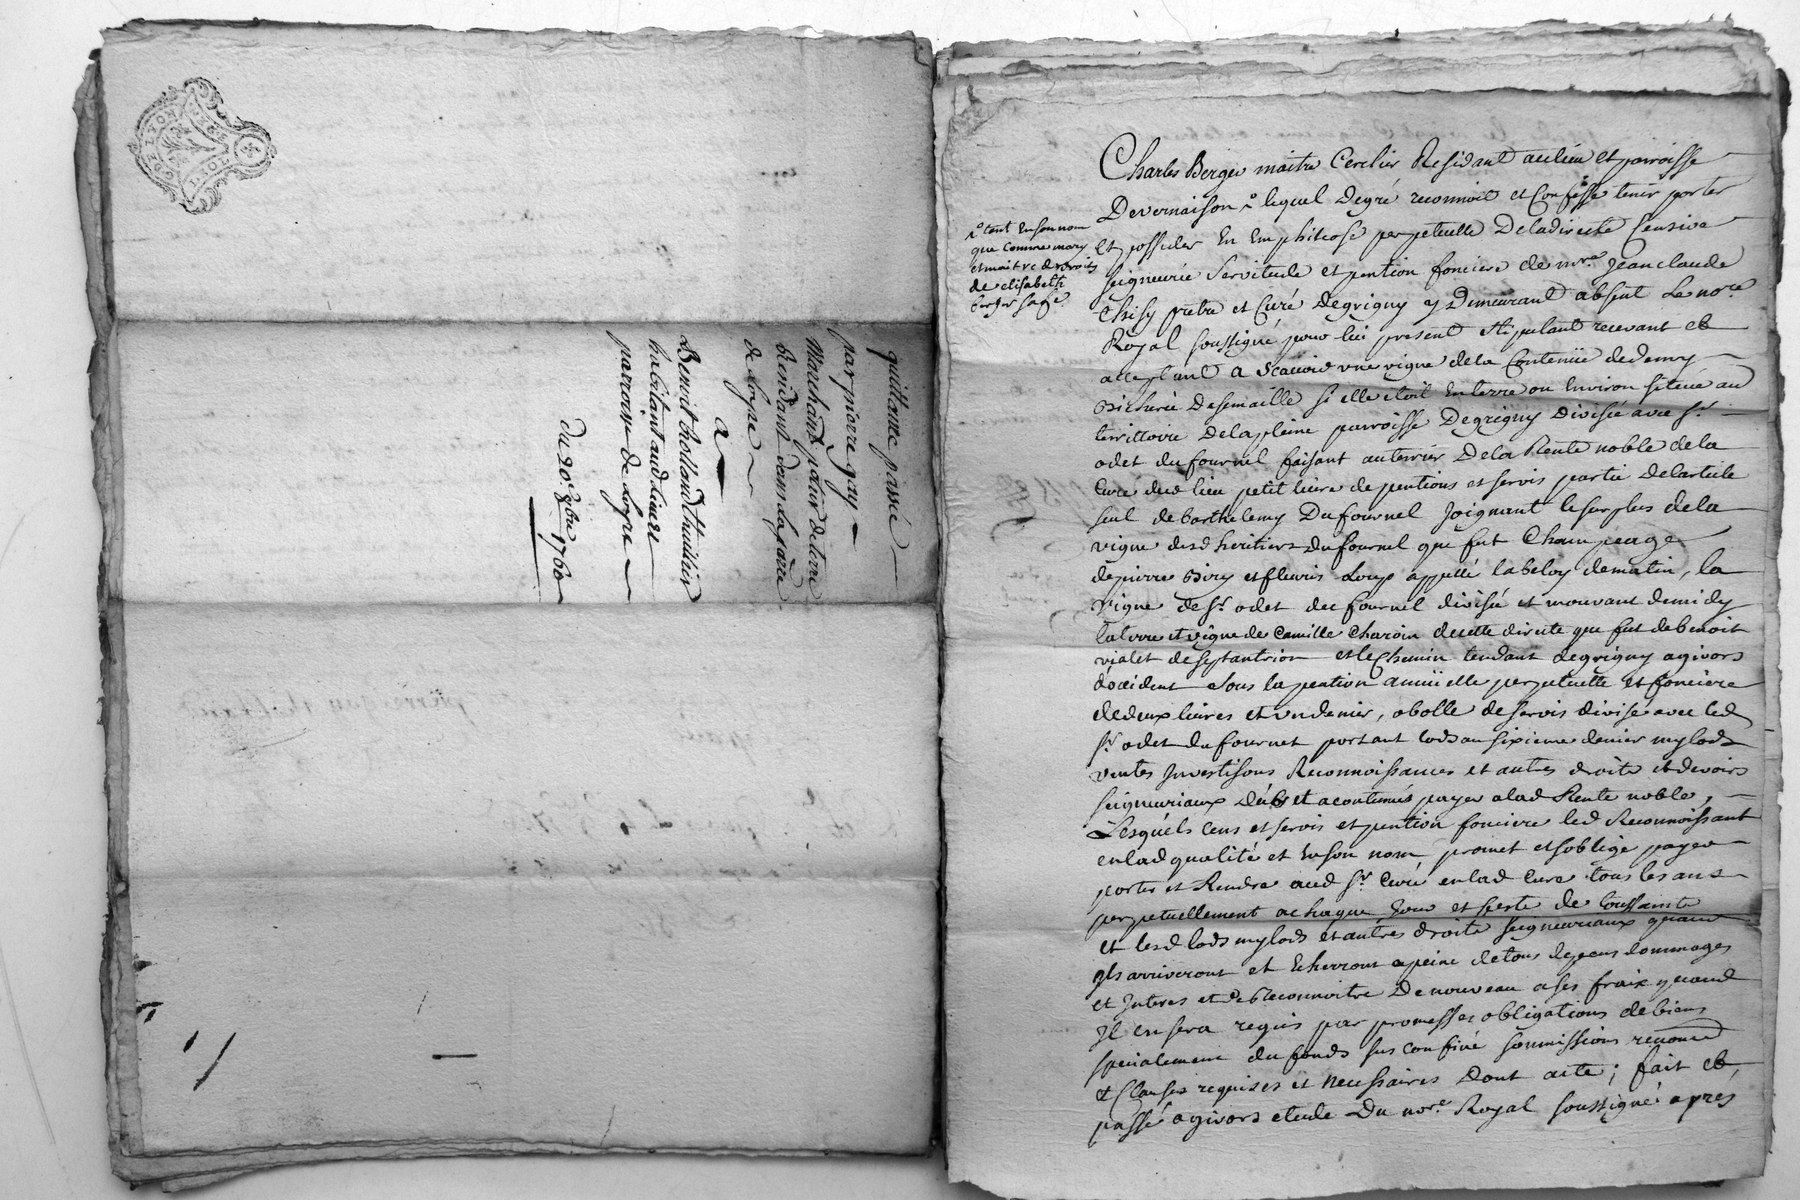 quittance passé
par pierre gay
Marchand potier de terre
Residant dans la parre
de loyre
A
Benoit hollond thuillier
habitant aud lieu et
parroisse de Loyre
du 20e 9bre 1760
Charles Berger maitre Cerclier Residant aulieu et parroisse
Devernaison lequel degré reconnoit et Confesse tenir porter
et posseder En Emphiteose perpetuelle Deladirecte Censive
seigneurie Servitude et pention fonciere de mre. Jean claude
prêtre et Curé Degrigny y Demeurant absent Le nore.
Royal soussigné pour lui present stipulant recevant et
acceptant A Scavoir une vigne dela Contenüe dedemy
Bicherée Desemaille si elle etoit Enterre ou Environ située au
territoire Delapleine parroisse Degrigny Divisée avec Sr.
odet dufournel faisant auterrier Dela Rente noble dela
Cure dud lieu petit livre de pentions et servis partie delarticle
seul debarthelemy Dufournel Joignant lesurplus dela
vigne desd heritiers Dufournel que fut
depierre et fleuris Loup appellé dematin, la
vigne de Sr. odet du fournel divisée et mouvant demidy
laterre et vigne de Camille Charoin decette directe que fut debenoit
violet deseptantrion et leChemin tendant degrigny agivors
d'occident sous la pention annüelle perpetuelle et fonciere
dedeux livres et un denier, obolle de servis divisé avec led
Sr. odet dufournel portant lods au sixieme denier mylods
ventes Investisons Reconnoissances et autres droits et devoirs
seigneuriaux dûbs et acoutumés payer alad Rente noble,
Lesquels Cens et servis et pention fonciere led Reconnoissant
enlad qualité et En son nom promet et soblige payer
porter et Rendre aud Sr. Curé enlad Cure tous les ans
perpetuellement achaque Jour et feste de toussaints
et lesd lods mylods et autres droits seigneuriaux quand
ils arriveront et Echerront apeine detous depens dommages
et Interes et de Reconnoitre De nouveau ases fraix quand
Il en sera requis par promesses obligations debiens
specialement du fonds sus confiné soumissions renond
& Clauses requises et necessaires Dont acte; fait et
passé agivors etude Du nore. Royal soussigné après
tant En son nom
que comme mary
et maitre des droits
de elisabeth